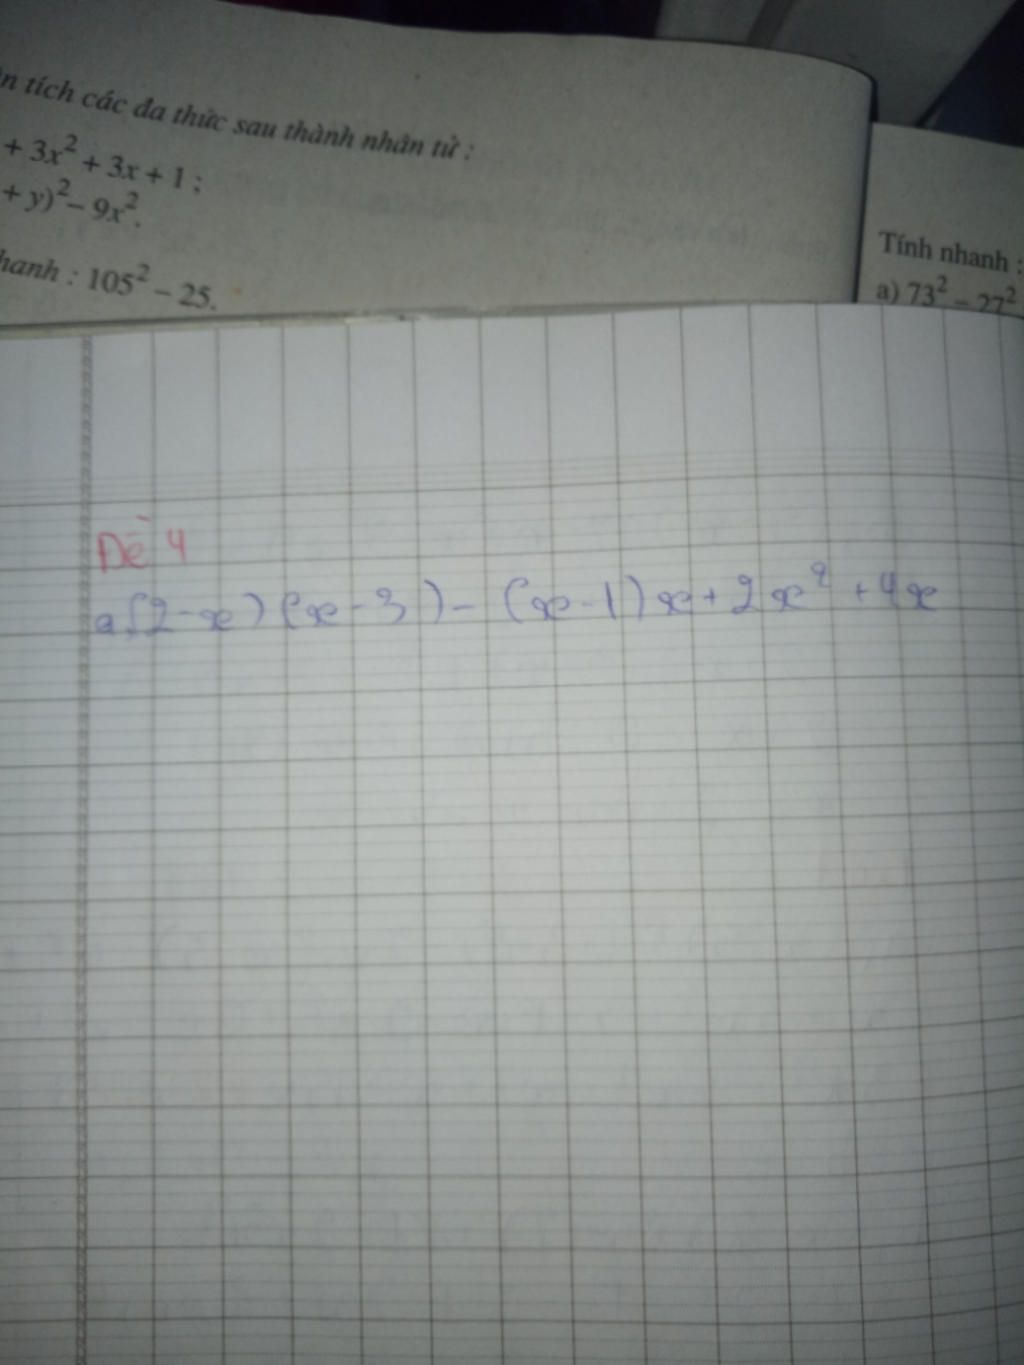 n tích các đa thức sau thành nhân tử :
+ 3x² + 3x + 1 ;
+ y)² – 9x².
hanh : 105² – 25.
Tính nhanh :
a) 73² – 27²
Đề 4
a, (2-x) (x-3) - (x-1)x + 2x² + 4x